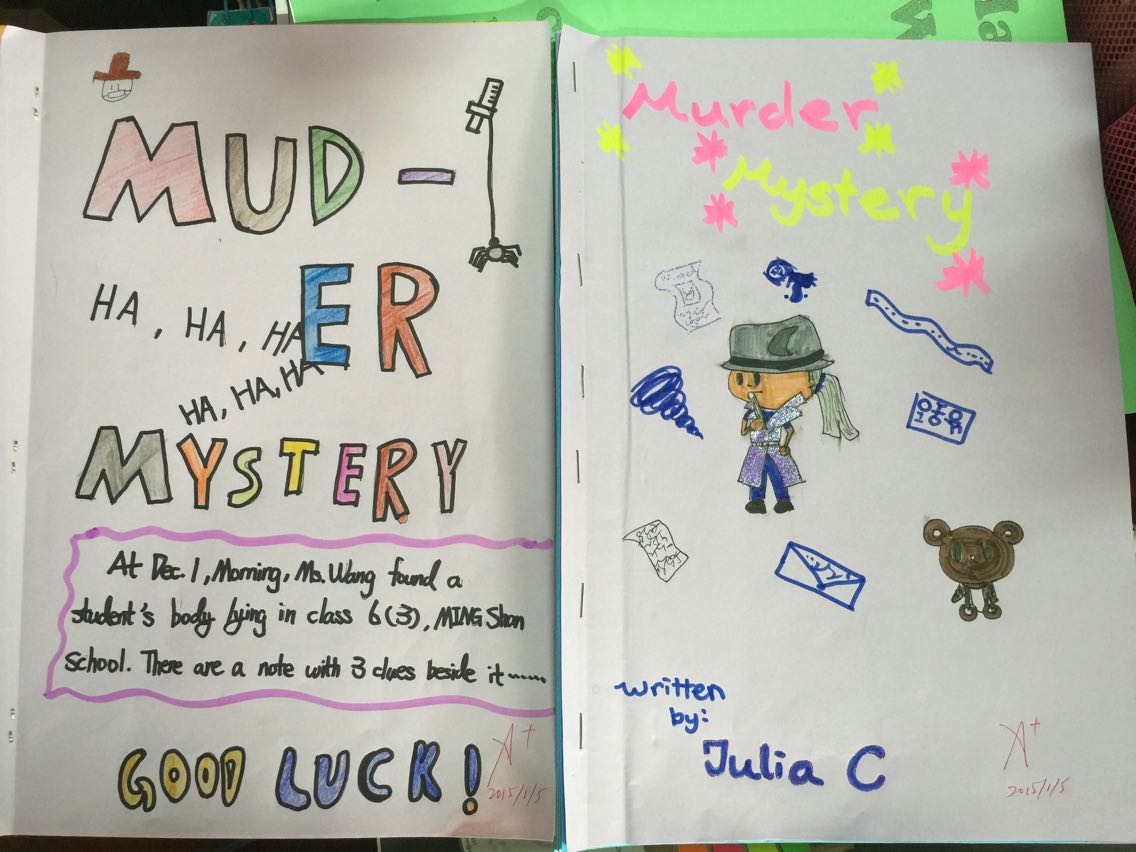 MUD-
HA, HA, HA
ER
HA, HA, HA
MYSTERY
At Dec. 1, Morning, Ms. Wang found a
student's body lying in class 6(3), MING Shan
school. There are a note with 3 clues beside it......
GOOD LUCK!
A+
2015/1/5
Murder
Mystery
written
by:
Julia C
A+
2015/1/5